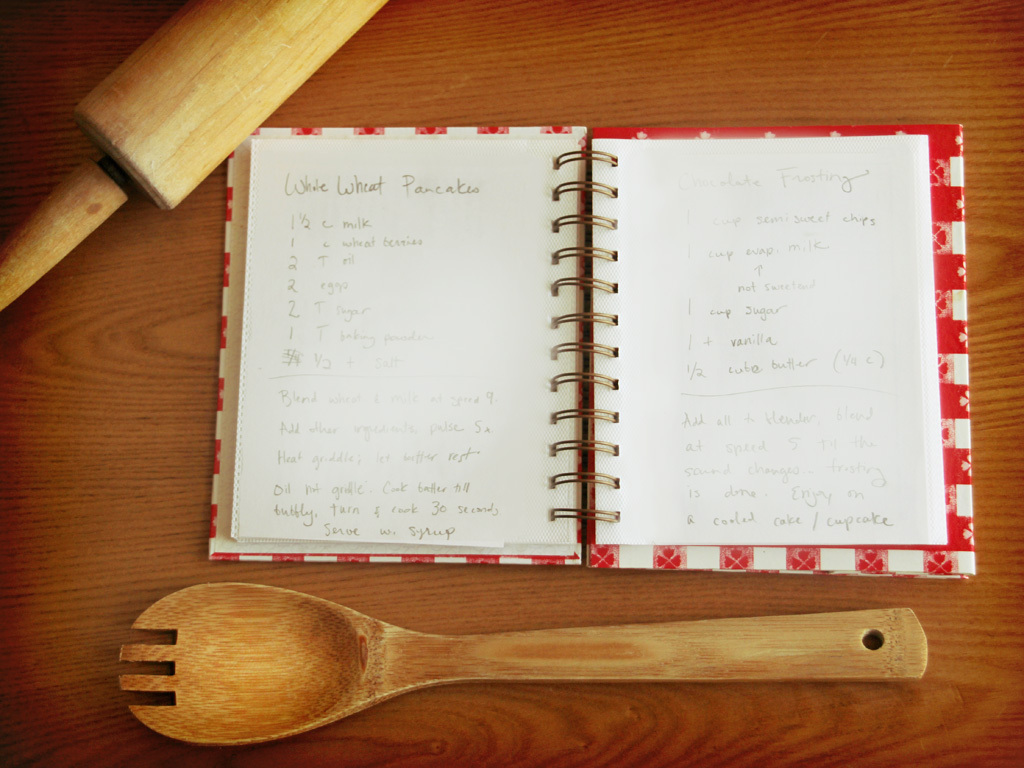 Whole Wheat Pancakes
1 1/2 c milk
1 c wheat berries
2 T oil
2 eggs
2 T sugar
1 T baking powder
1/2 t salt
Blend wheat & milk at speed 9.
Add other ingredients, pulse 5x
Heat griddle; let batter rest
Oil hot griddle. Cook batter till
bubbly, turn & cook 30 seconds
Serve w. syrup
Chocolate Frosting
1 cup semisweet chips
1 cup evap. milk
↑
not sweetened
1 cup sugar
1 t vanilla
1/2 cube butter (1/4 c)
Add all to blender, blend
at speed 5 til the
sound changes.. frosting
is done. Enjoy on
a cooled cake/cupcake